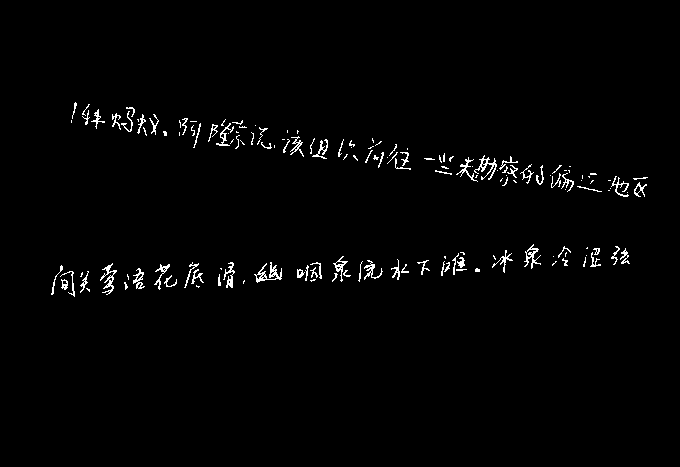 1种蚂蚁。阿隆索说,该组织前往一些未勘察的偏远地区
间关莺语花底滑,幽咽泉流水下滩。冰泉冷涩弦